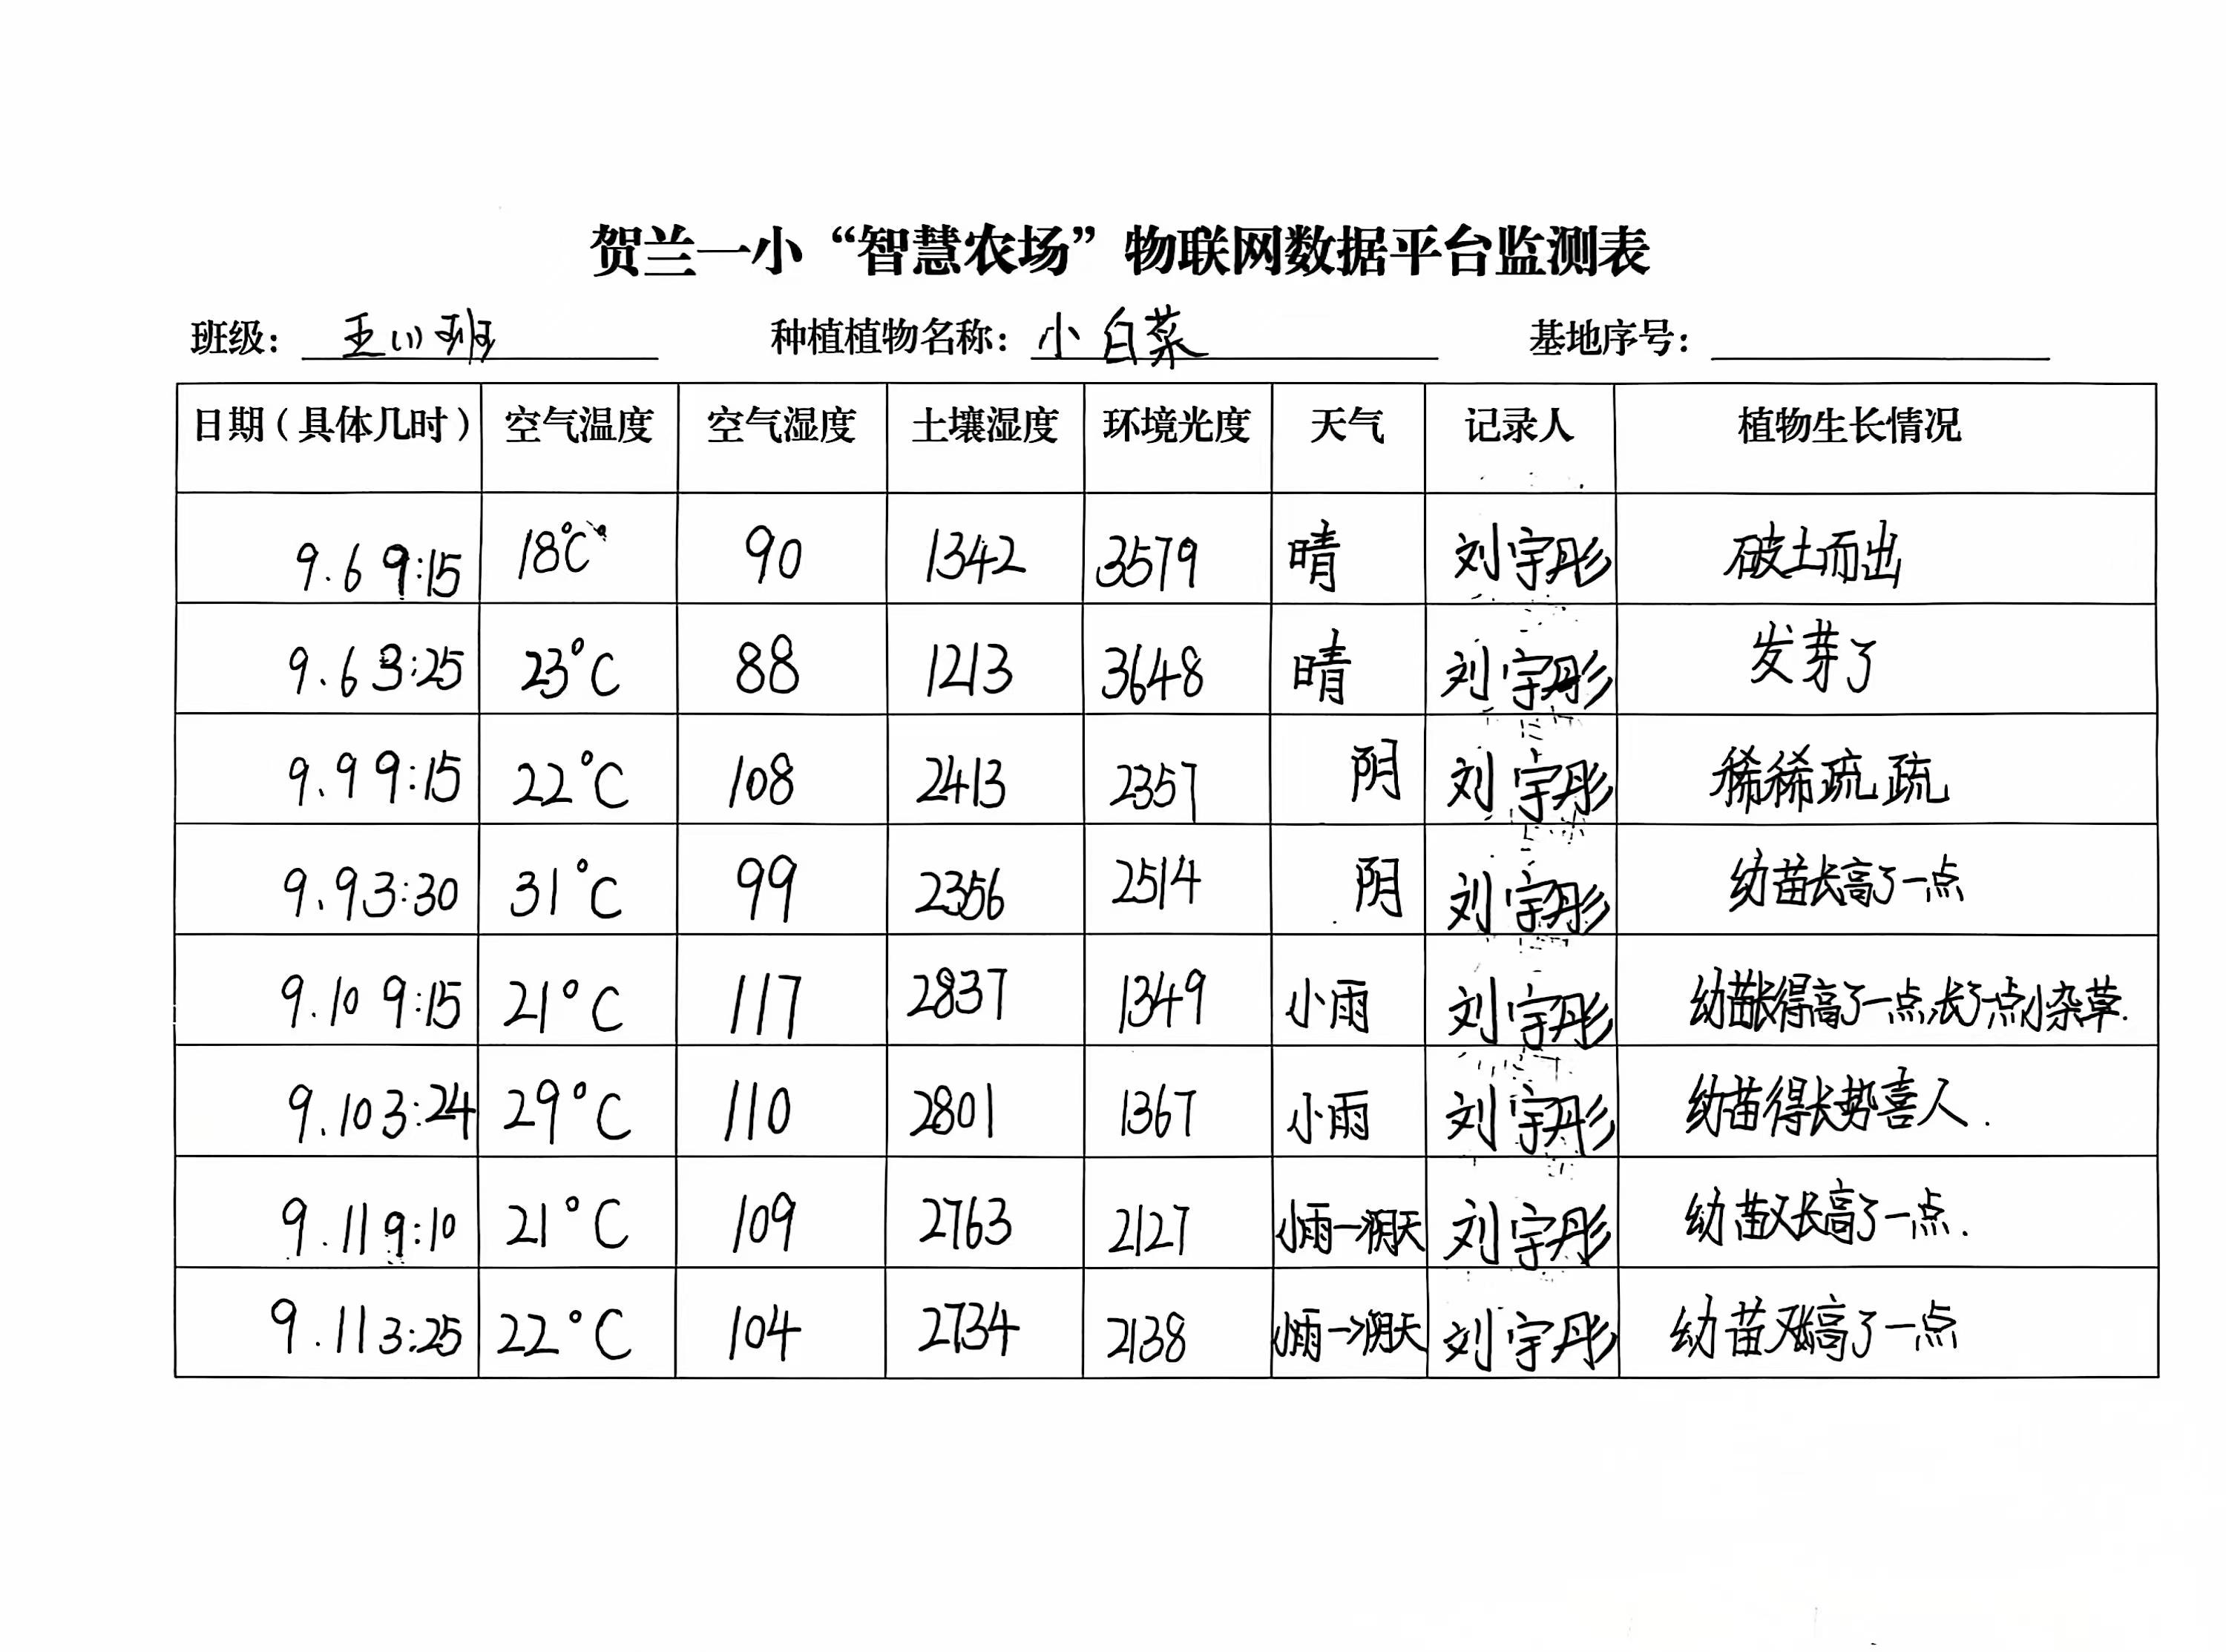 贺兰一小“智慧农场”物联网数据平台监测表
班级： 五(1)班 种植植物名称： 小白菜 基地序号：
日期（具体几时） 空气温度 空气湿度 土壤湿度 环境光度 天气 记录人 植物生长情况
9.6 9:15 18°C 90 1342 3579 晴 刘宇彤 破土而出
9.6 3:25 23°C 88 1213 3648 晴 刘宇彤 发芽了
9.9 9:15 22°C 108 2413 2357 阴 刘宇彤 稀稀疏疏
9.9 3:30 31°C 99 2356 2514 阴 刘宇彤 幼苗长高了一点
9.10 9:15 21°C 117 2837 1349 小雨 刘宇彤 幼苗长得高了一点,长了一点小杂草.
9.10 3:24 29°C 110 2801 1367 小雨 刘宇彤 幼苗得长势喜人.
9.11 9:10 21°C 109 2763 2127 小雨→阴天 刘宇彤 幼苗又长高了一点.
9.11 3:25 22°C 104 2734 2138 小雨→阴天 刘宇彤 幼苗又长高了一点